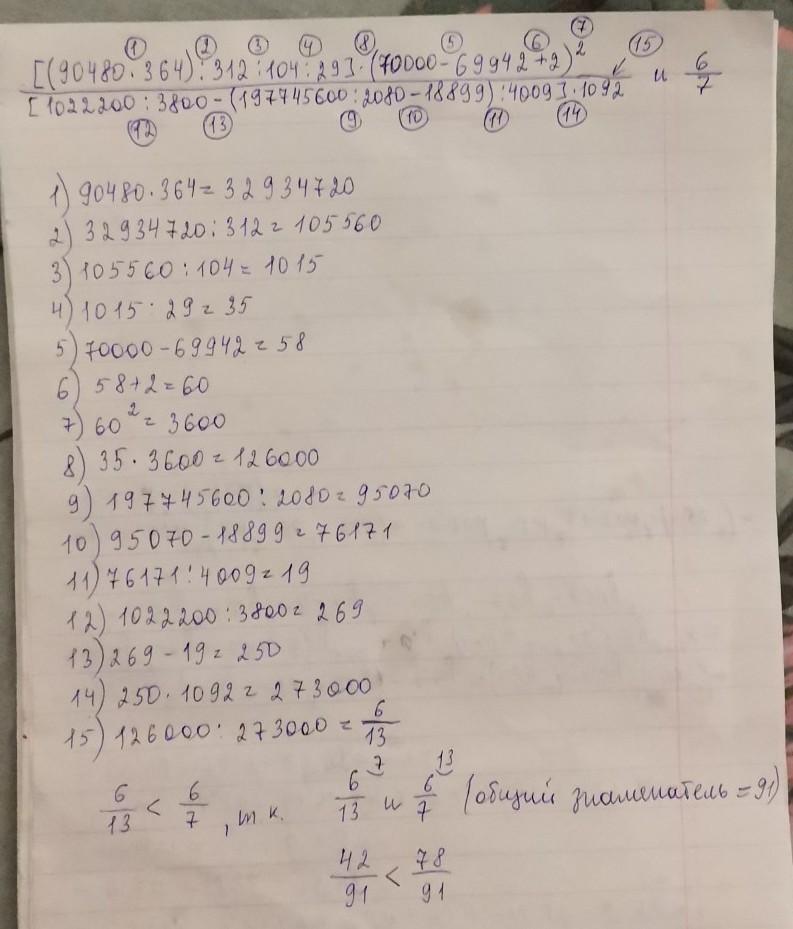 ① ② ③ ④ ⑧ ⑤ ⑥ ⑦ ⑮
[(90480·364):312:104:29]·(70000-69942+2)² и 6/7
[1022200:3800-(197745600:2080-18899):4009]·1092
⑫ ⑬ ⑨ ⑩ ⑪ ⑭
1) 90480·364=32934720
2) 32934720:312=105560
3) 105560:104=1015
4) 1015:29=35
5) 70000-69942=58
6) 58+2=60
7) 60²=3600
8) 35·3600=126000
9) 197745600:2080=95070
10) 95070-18899=76171
11) 76171:4009=19
12) 1022200:3800=269
13) 269-19=250
14) 250·1092=273000
15) 126000:273000=6/13
6/13 < 6/7, т.к. 6/13 ⁷ и 6/7 ¹³ (общий знаменатель=91)
42/91 < 78/91